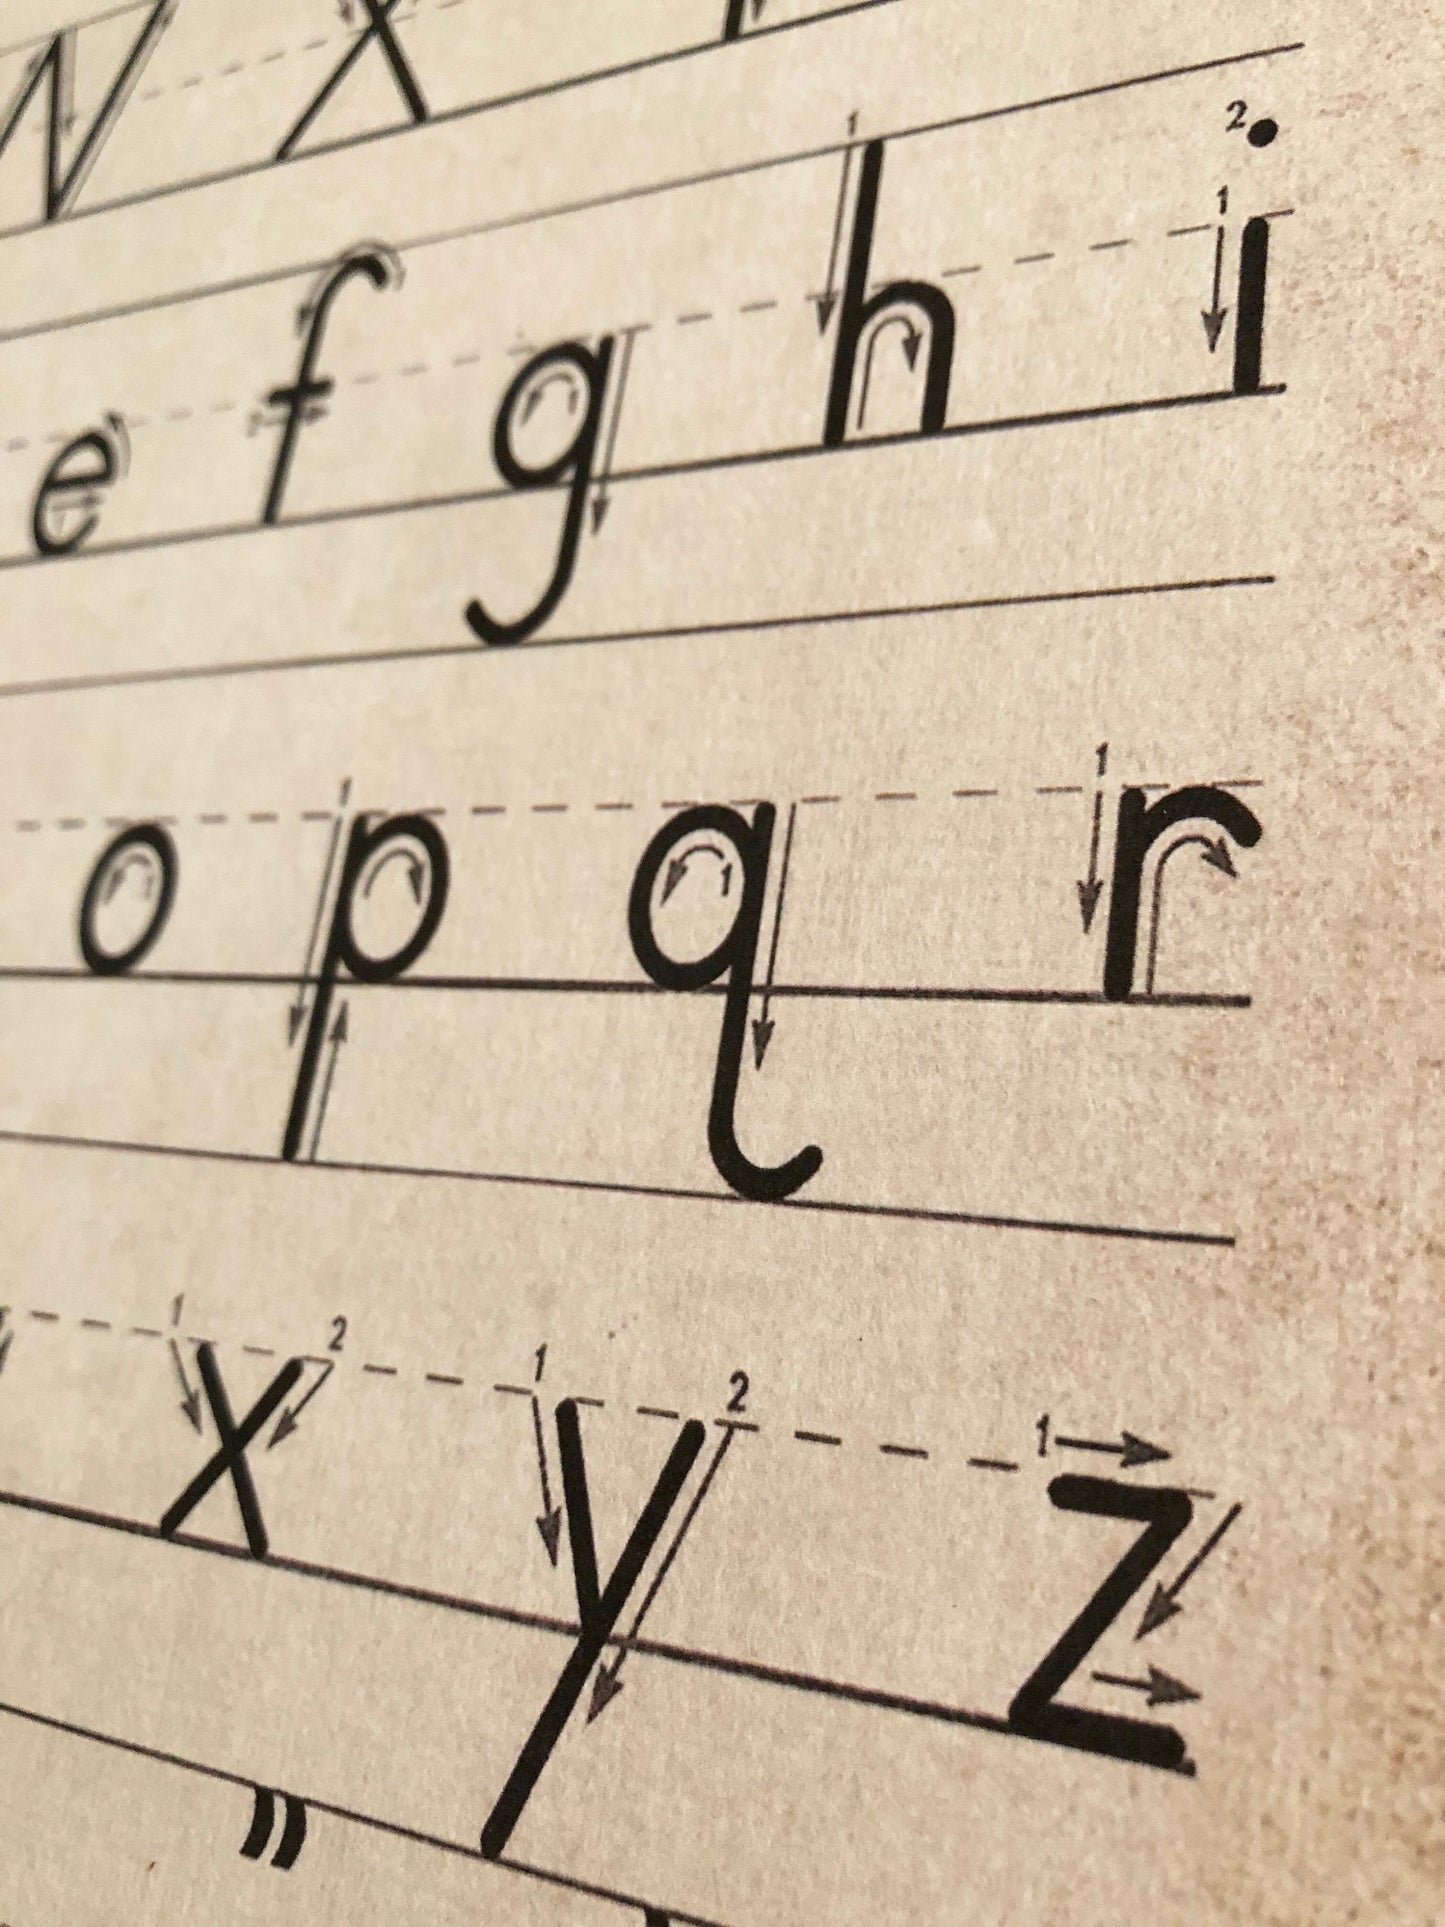 W X
e f g h i
o p q r
x y z
"